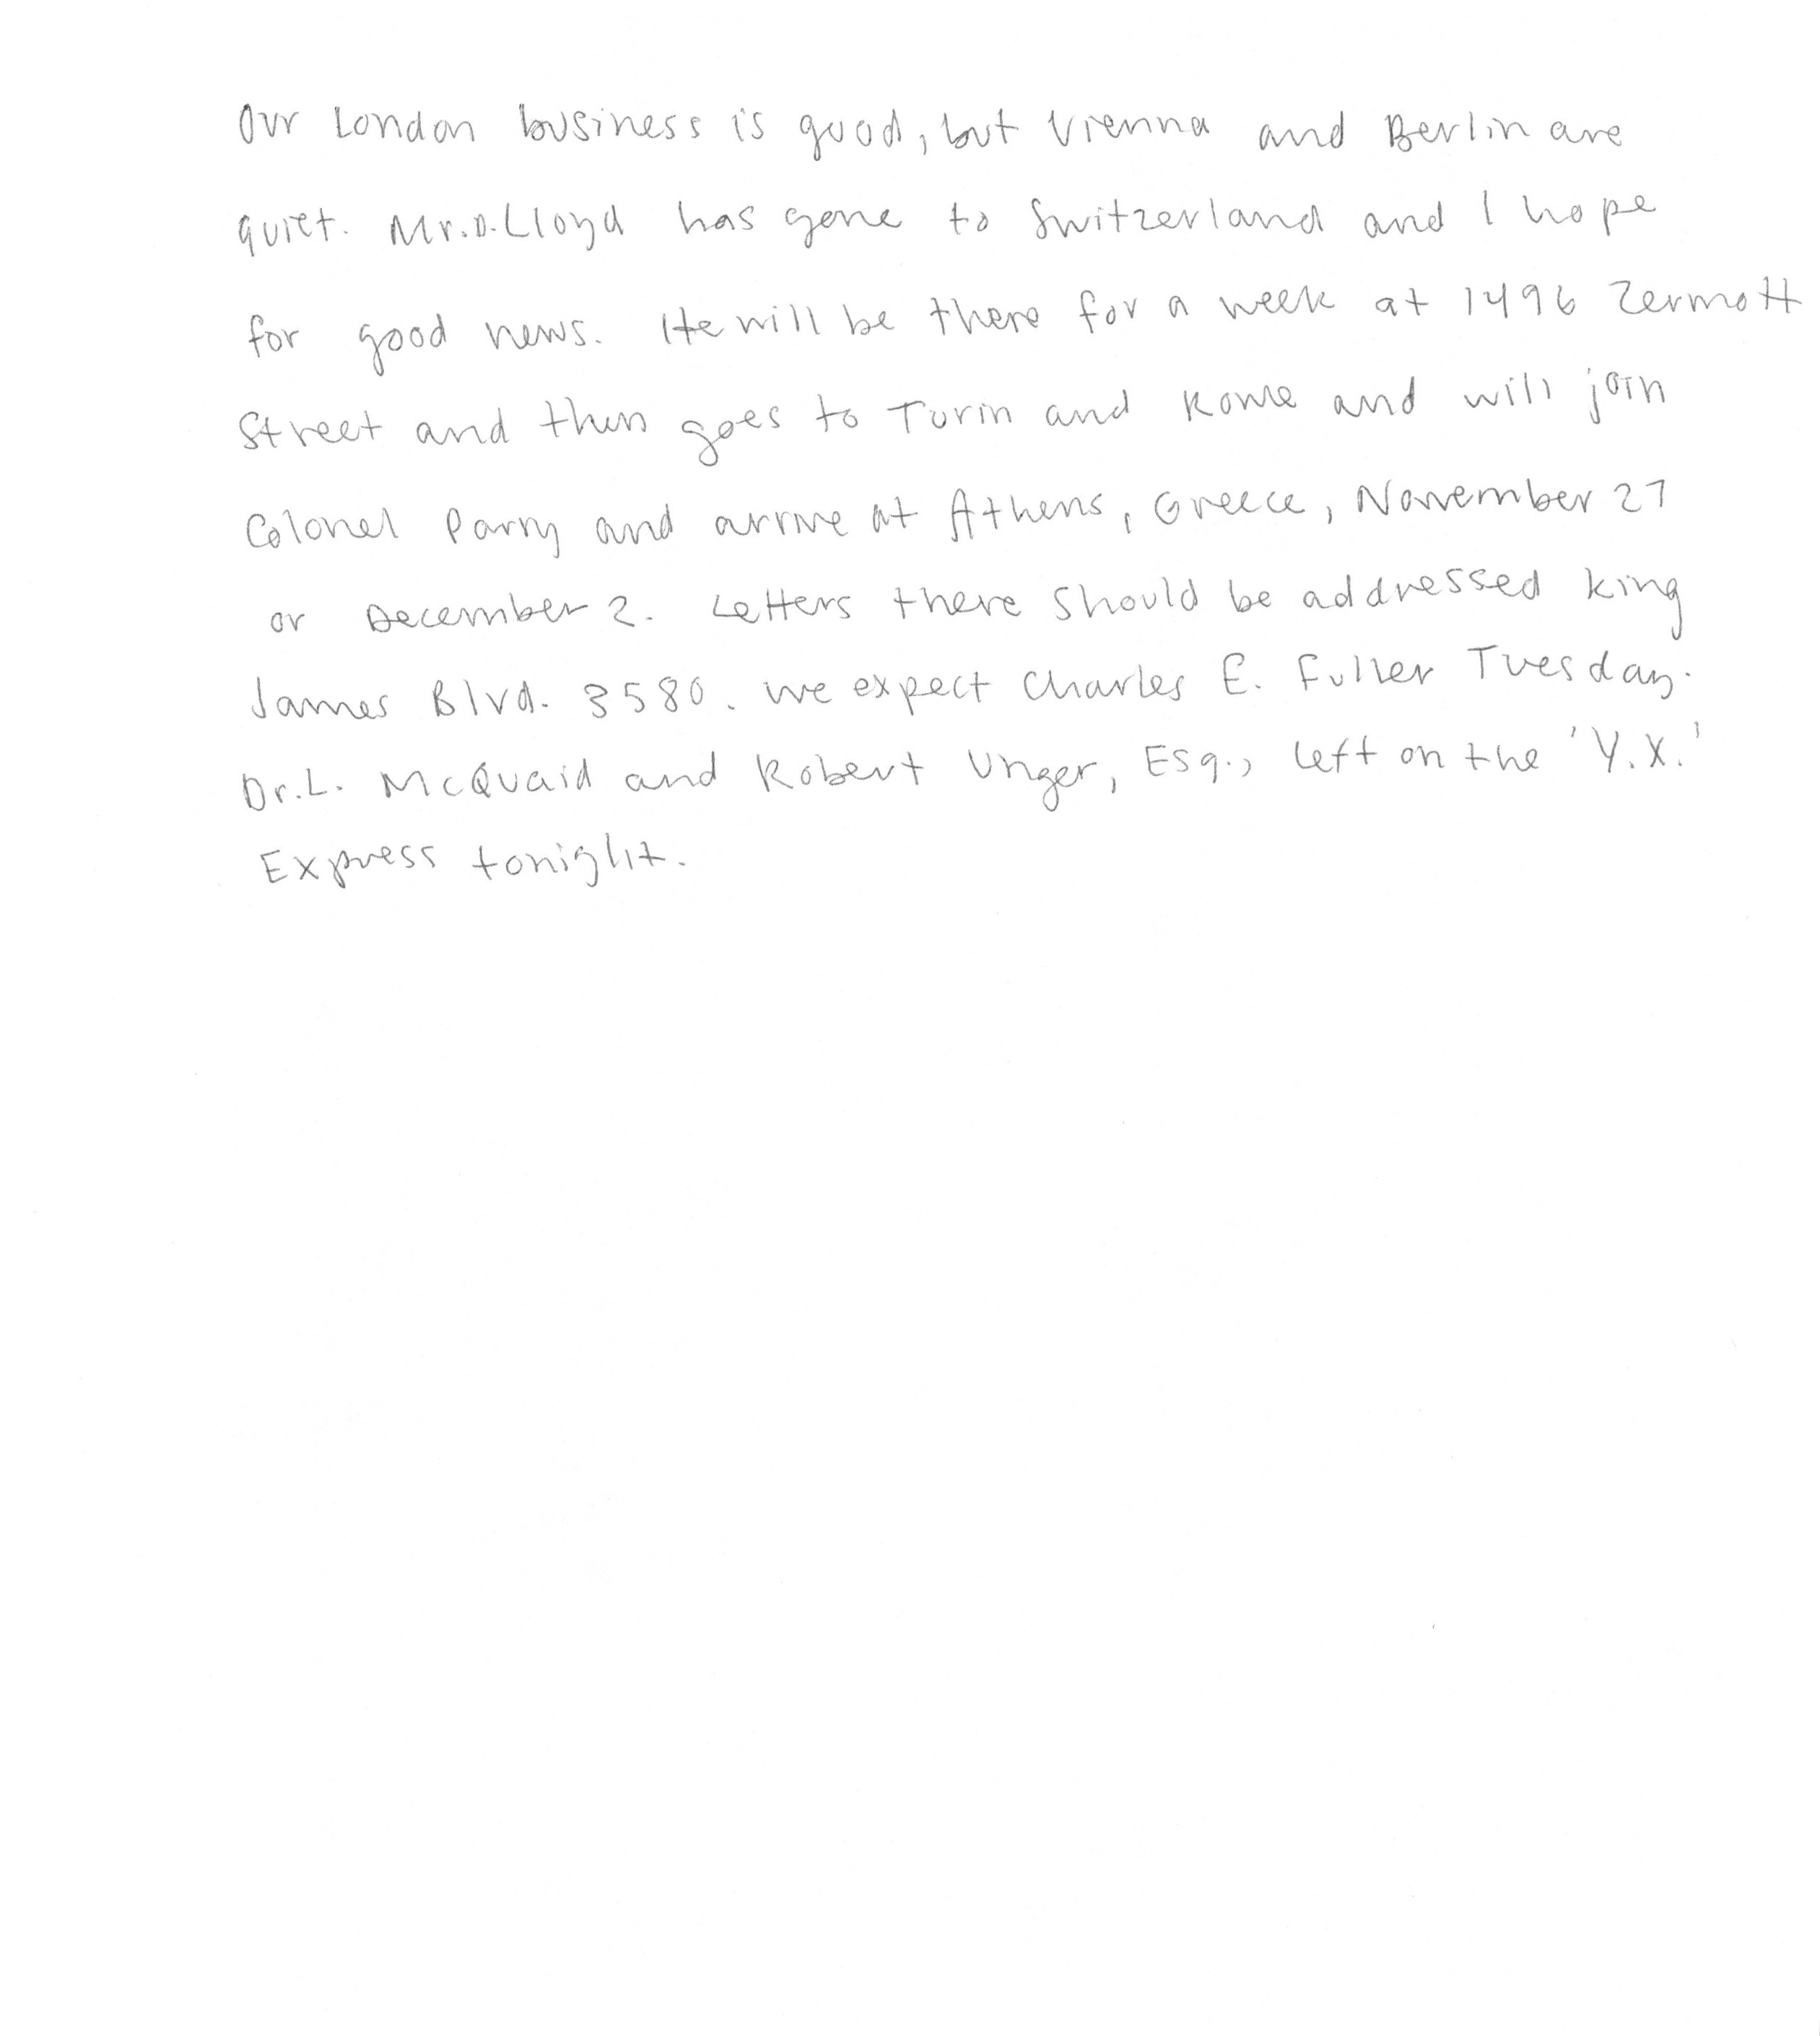 Our London business is good, but Vienna and Berlin are
quiet. Mr. D. Lloyd has gone to Switzerland and I hope
for good news. He will be there for a week at 1496 Zermott
Street and then goes to Turin and Rome and will join
Colonel Parry and arrive at Athens, Greece, November 27
or December 2. Letters there should be addressed King
James Blvd. 3580. We expect Charles E. Fuller Tuesday.
Dr. L. McQuaid and Robert Unger, Esq., left on the 'Y.X.'
Express tonight.